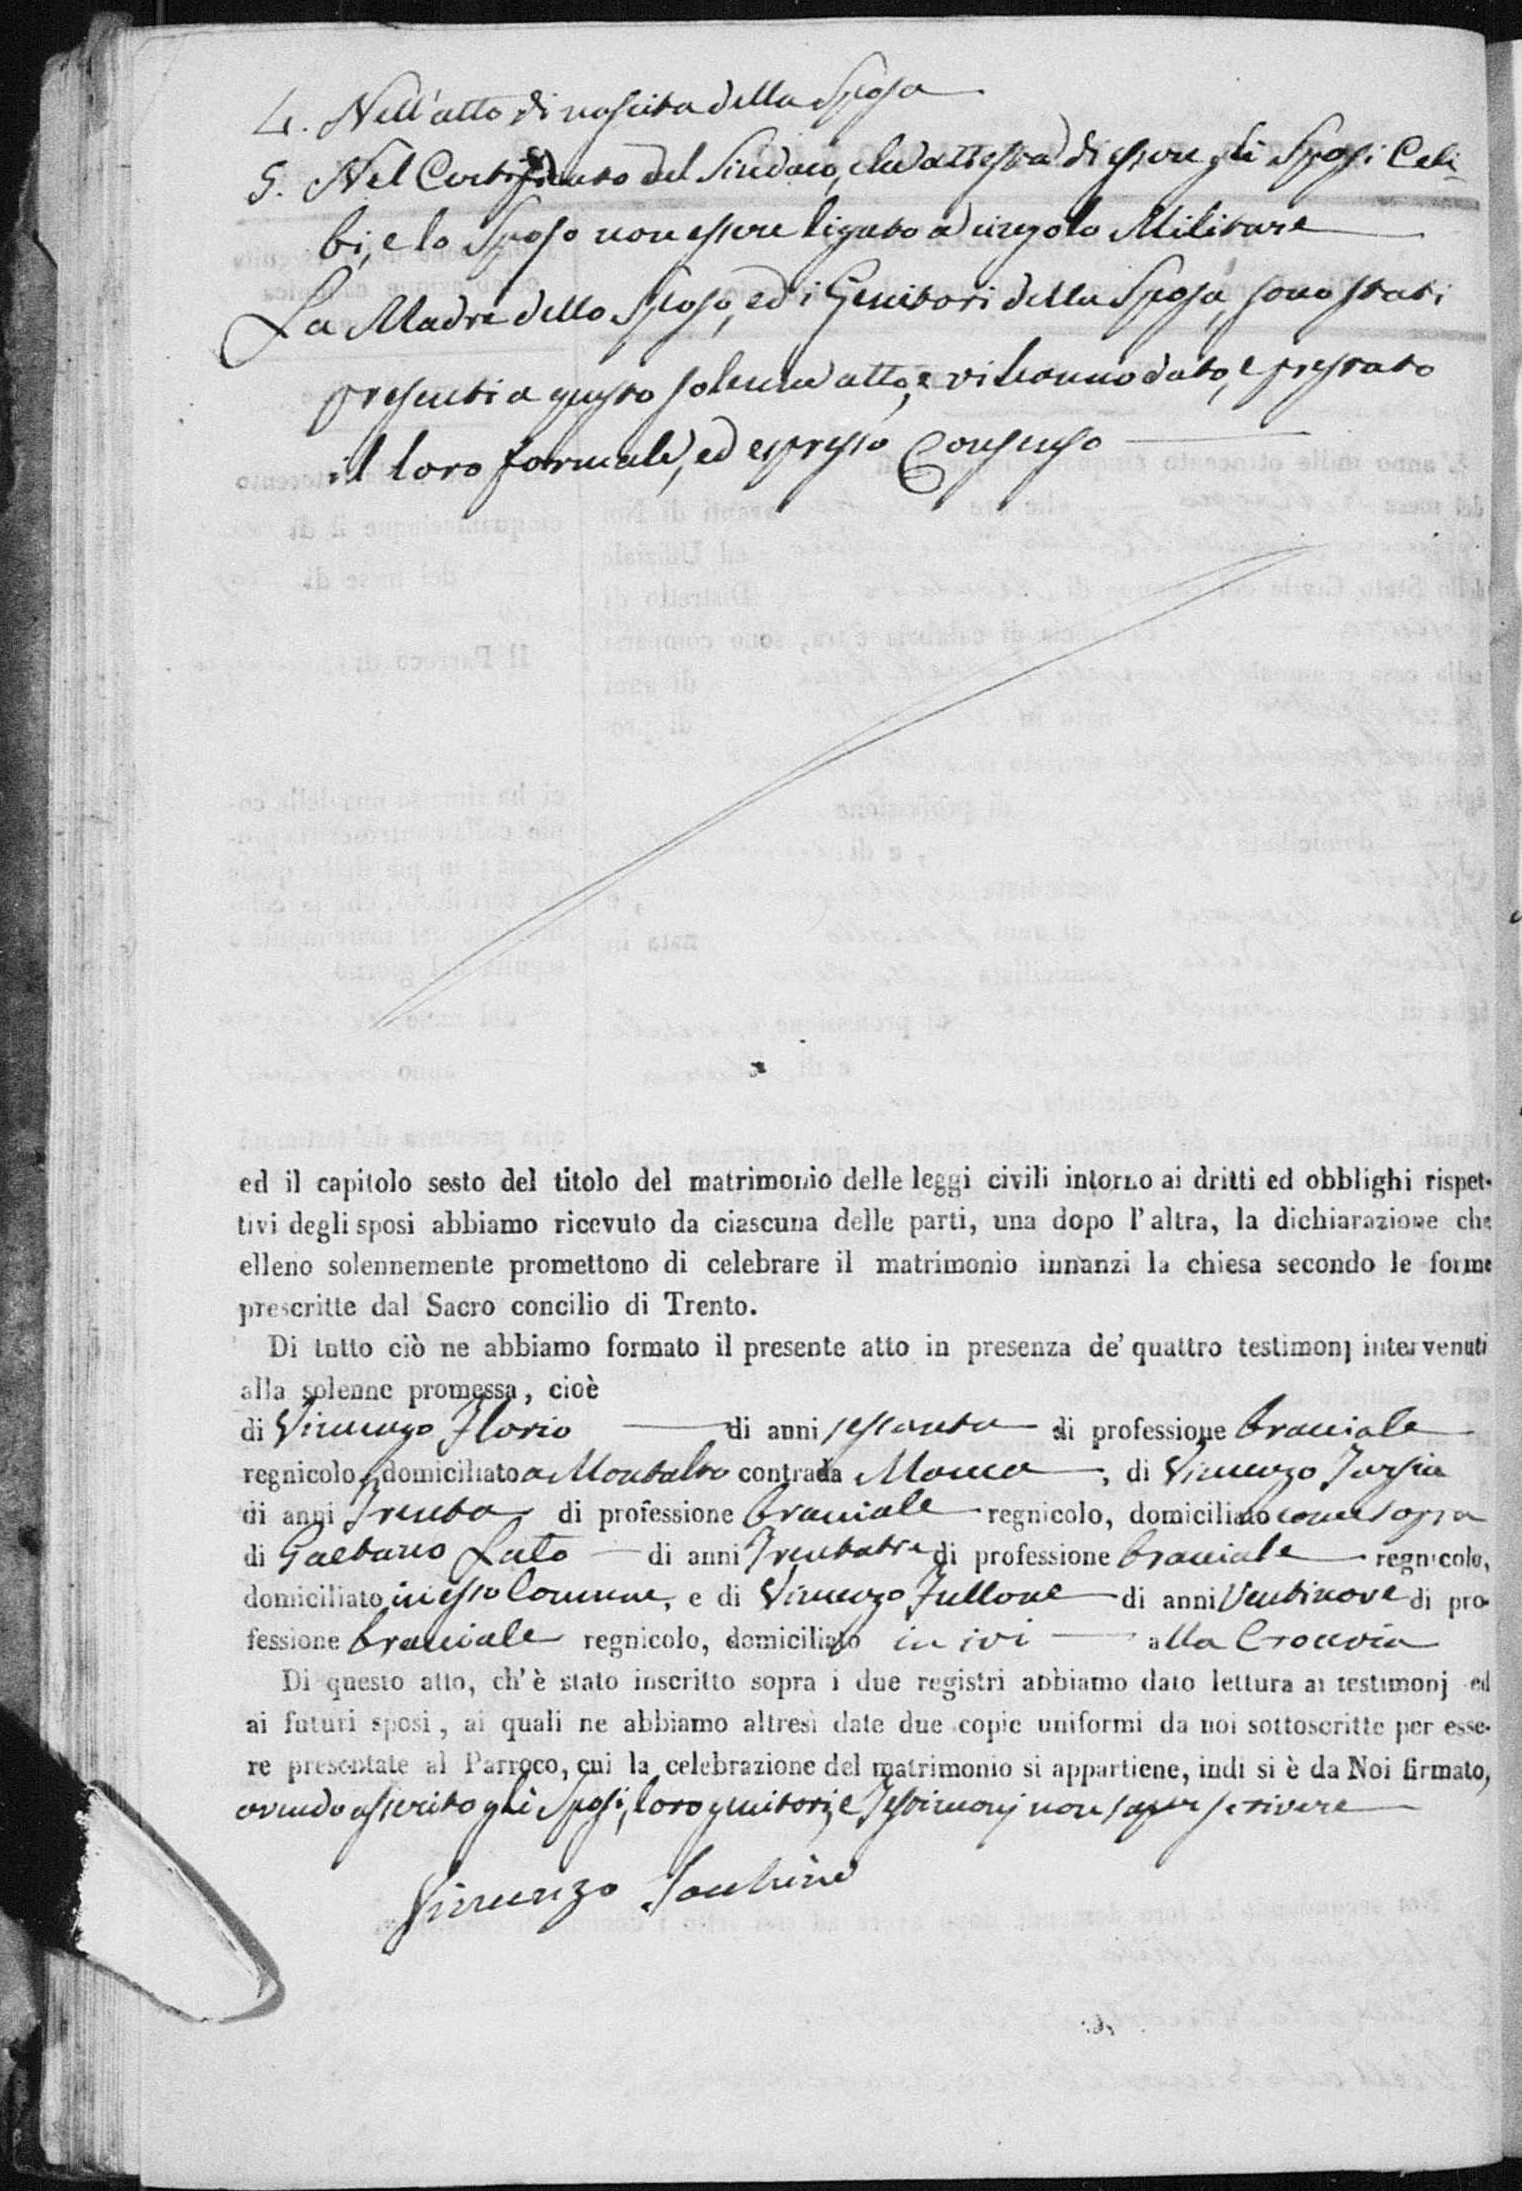 4. Nell'atto di nascita della Sposa
5. Nel Certificato del Sindaco, che attesta di essere gli Sposi Celi-
bi, e lo Sposo non essere ligato a cingolo Militare
La Madre dello Sposo, ed i Genitori della Sposa, sono stati
presenti a questo solenne atto, e vi hanno dato, e prestato
il loro formale, ed espresso Consenso
ed il capitolo sesto del titolo del matrimonio delle leggi civili intorno ai dritti ed obblighi rispet-
tivi degli sposi abbiamo ricevuto da ciascuna delle parti, una dopo l'altra, la dichiarazione che
elleno solennemente promettono di celebrare il matrimonio innanzi la chiesa secondo le forme
prescritte dal Sacro concilio di Trento.
Di tutto ciò ne abbiamo formato il presente atto in presenza de' quattro testimonj intervenuti
alla solenne promessa, cioè
di Vincenzo Florio di anni sessanta di professione bracciale
regnicolo, domiciliato a Montalto contrada , di Vincenzo
di anni Trenta di professione bracciale regnicolo, domiciliato come sopra
di Gaetano Lato di anni Trentatre di professione bracciale regnicolo,
domiciliato in esso Comune, e di Vincenzo Fullone di anni Ventinove di pro-
fessione bracciale regnicolo, domiciliato in ivi alla
Di questo atto, ch'è stato inscritto sopra i due registri abbiamo dato lettura ai testimonj ed
ai futuri sposi, ai quali ne abbiamo altresì date due copie uniformi da noi sottoscritte per esse-
re presentate al Parroco, cui la celebrazione del matrimonio si appartiene, indi si è da Noi firmato,
avendo asserito gli Sposi, loro genitori, e Testimonj non saper scrivere
Vincenzo